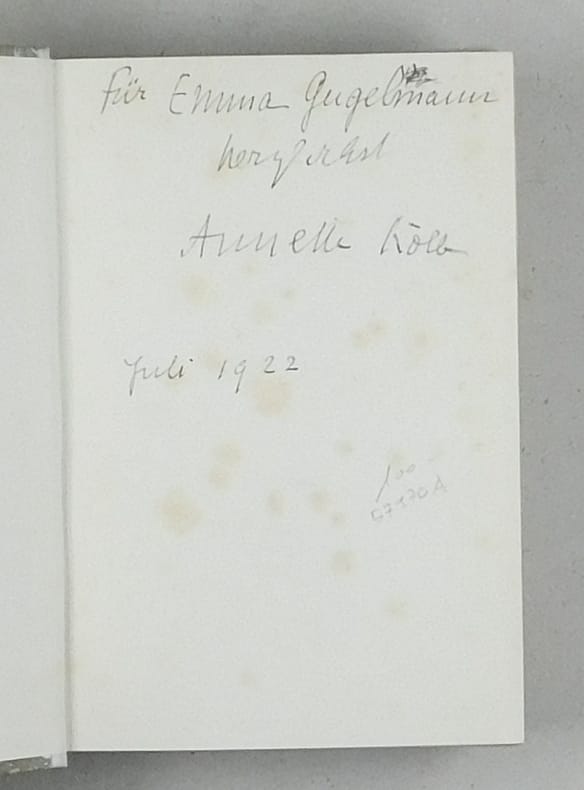 Für Emma Gugelmann
herzlichst
Annette Kolb
Juli 1922
100 -